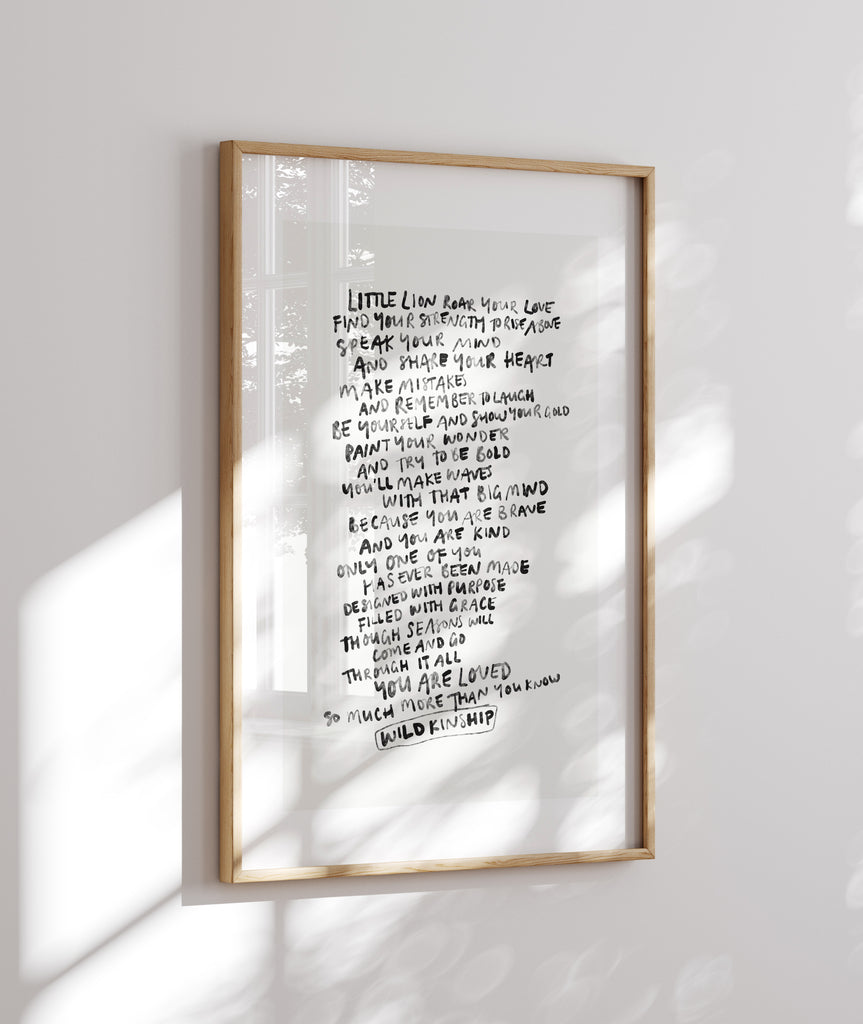 LITTLE LION ROAR YOUR LOVE
FIND YOUR STRENGTH TO RISE ABOVE
SPEAK YOUR MIND
AND SHARE YOUR HEART
MAKE MISTAKES
AND REMEMBER TO LAUGH
BE YOURSELF AND SHOW YOUR GOLD
PAINT YOUR WONDER
AND TRY TO BE BOLD
YOU'LL MAKE WAVES
WITH THAT BIG MIND
BECAUSE YOU ARE BRAVE
AND YOU ARE KIND
ONLY ONE OF YOU
HAS EVER BEEN MADE
DESIGNED WITH PURPOSE
FILLED WITH GRACE
THOUGH SEASONS WILL
COME AND GO
THROUGH IT ALL
YOU ARE LOVED
SO MUCH MORE THAN YOU KNOW
WILD KINSHIP